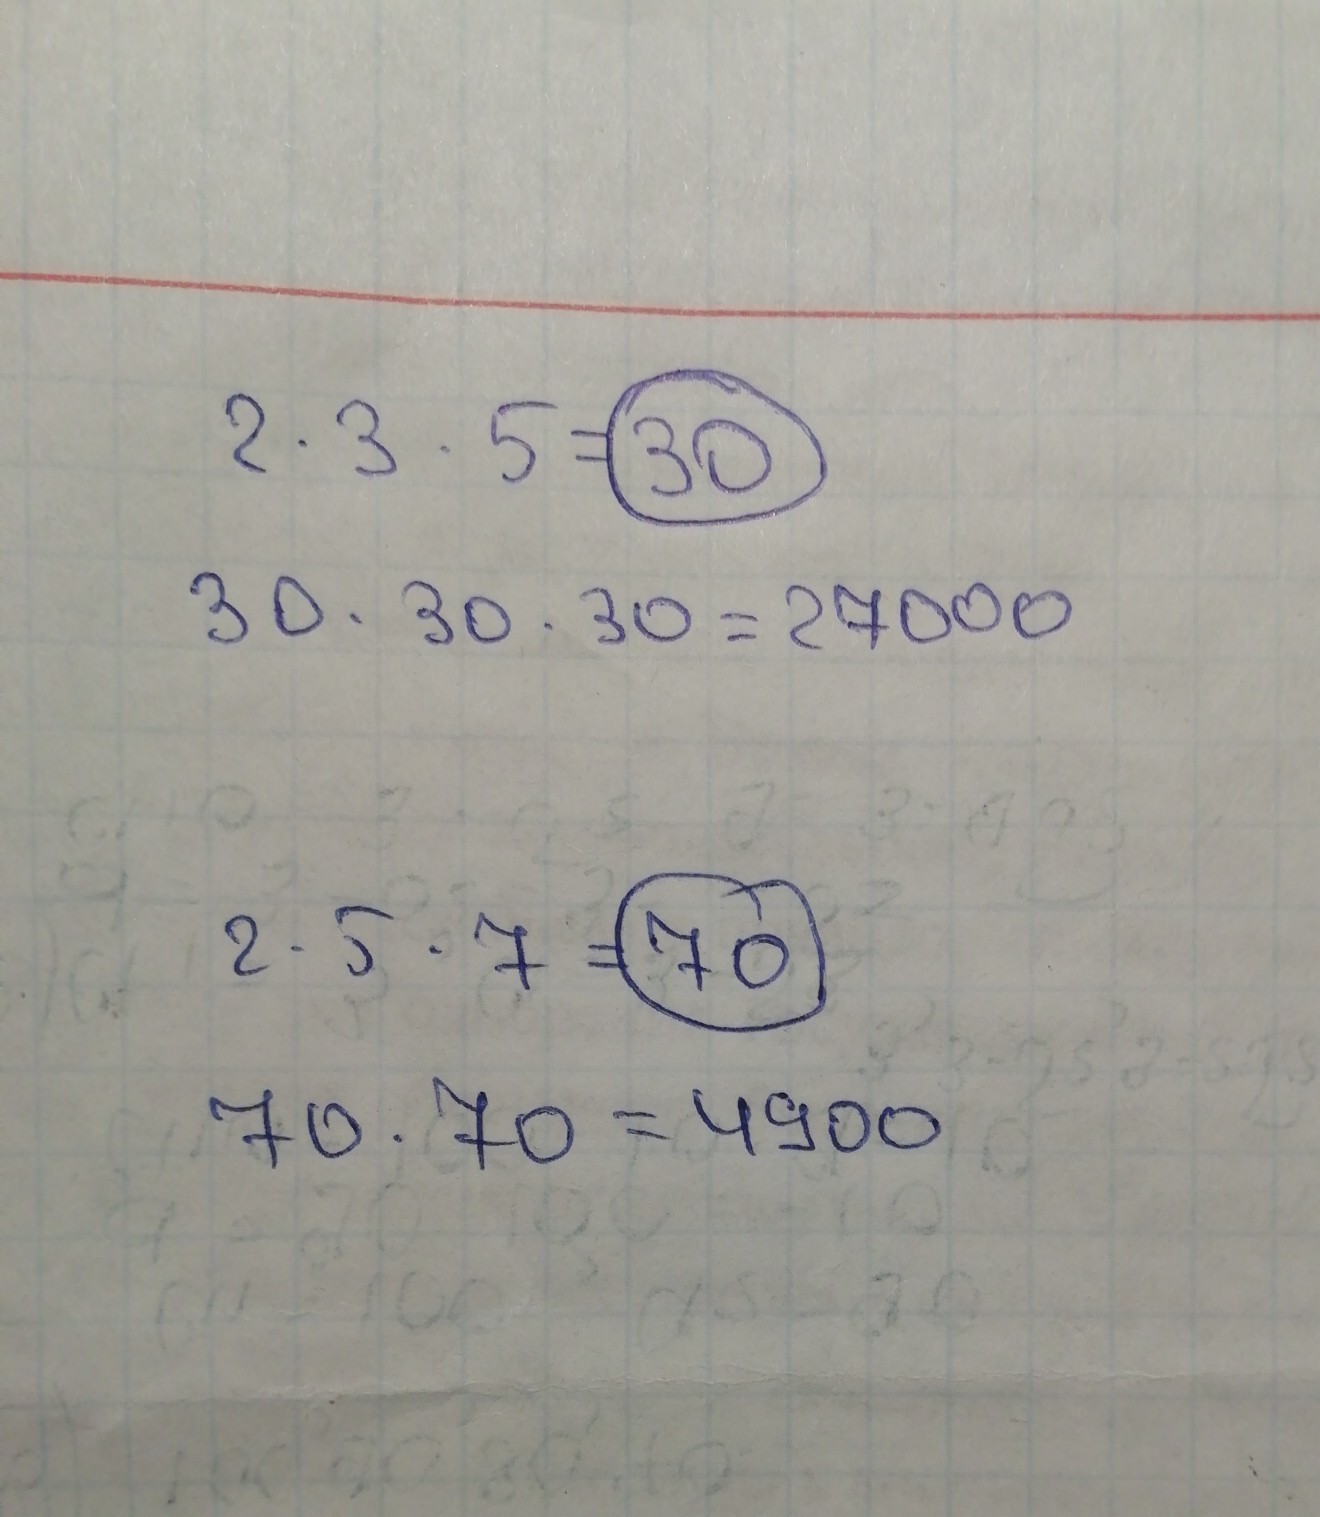 2 · 3 · 5 = 30
30 · 30 · 30 = 27000
2 · 5 · 7 = 70
70 · 70 = 4900